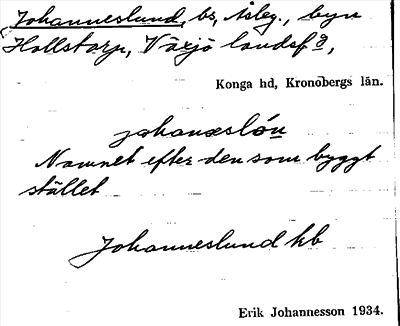 Johanneslund, bs, Åsleg., byn
Hollstorp, Växjö landsf⁠ö,
Konga hd, Kronobergs län.
johanəslón
Namnet efter den som byggt
stället
Johanneslund kb
Erik Johannesson 1934.